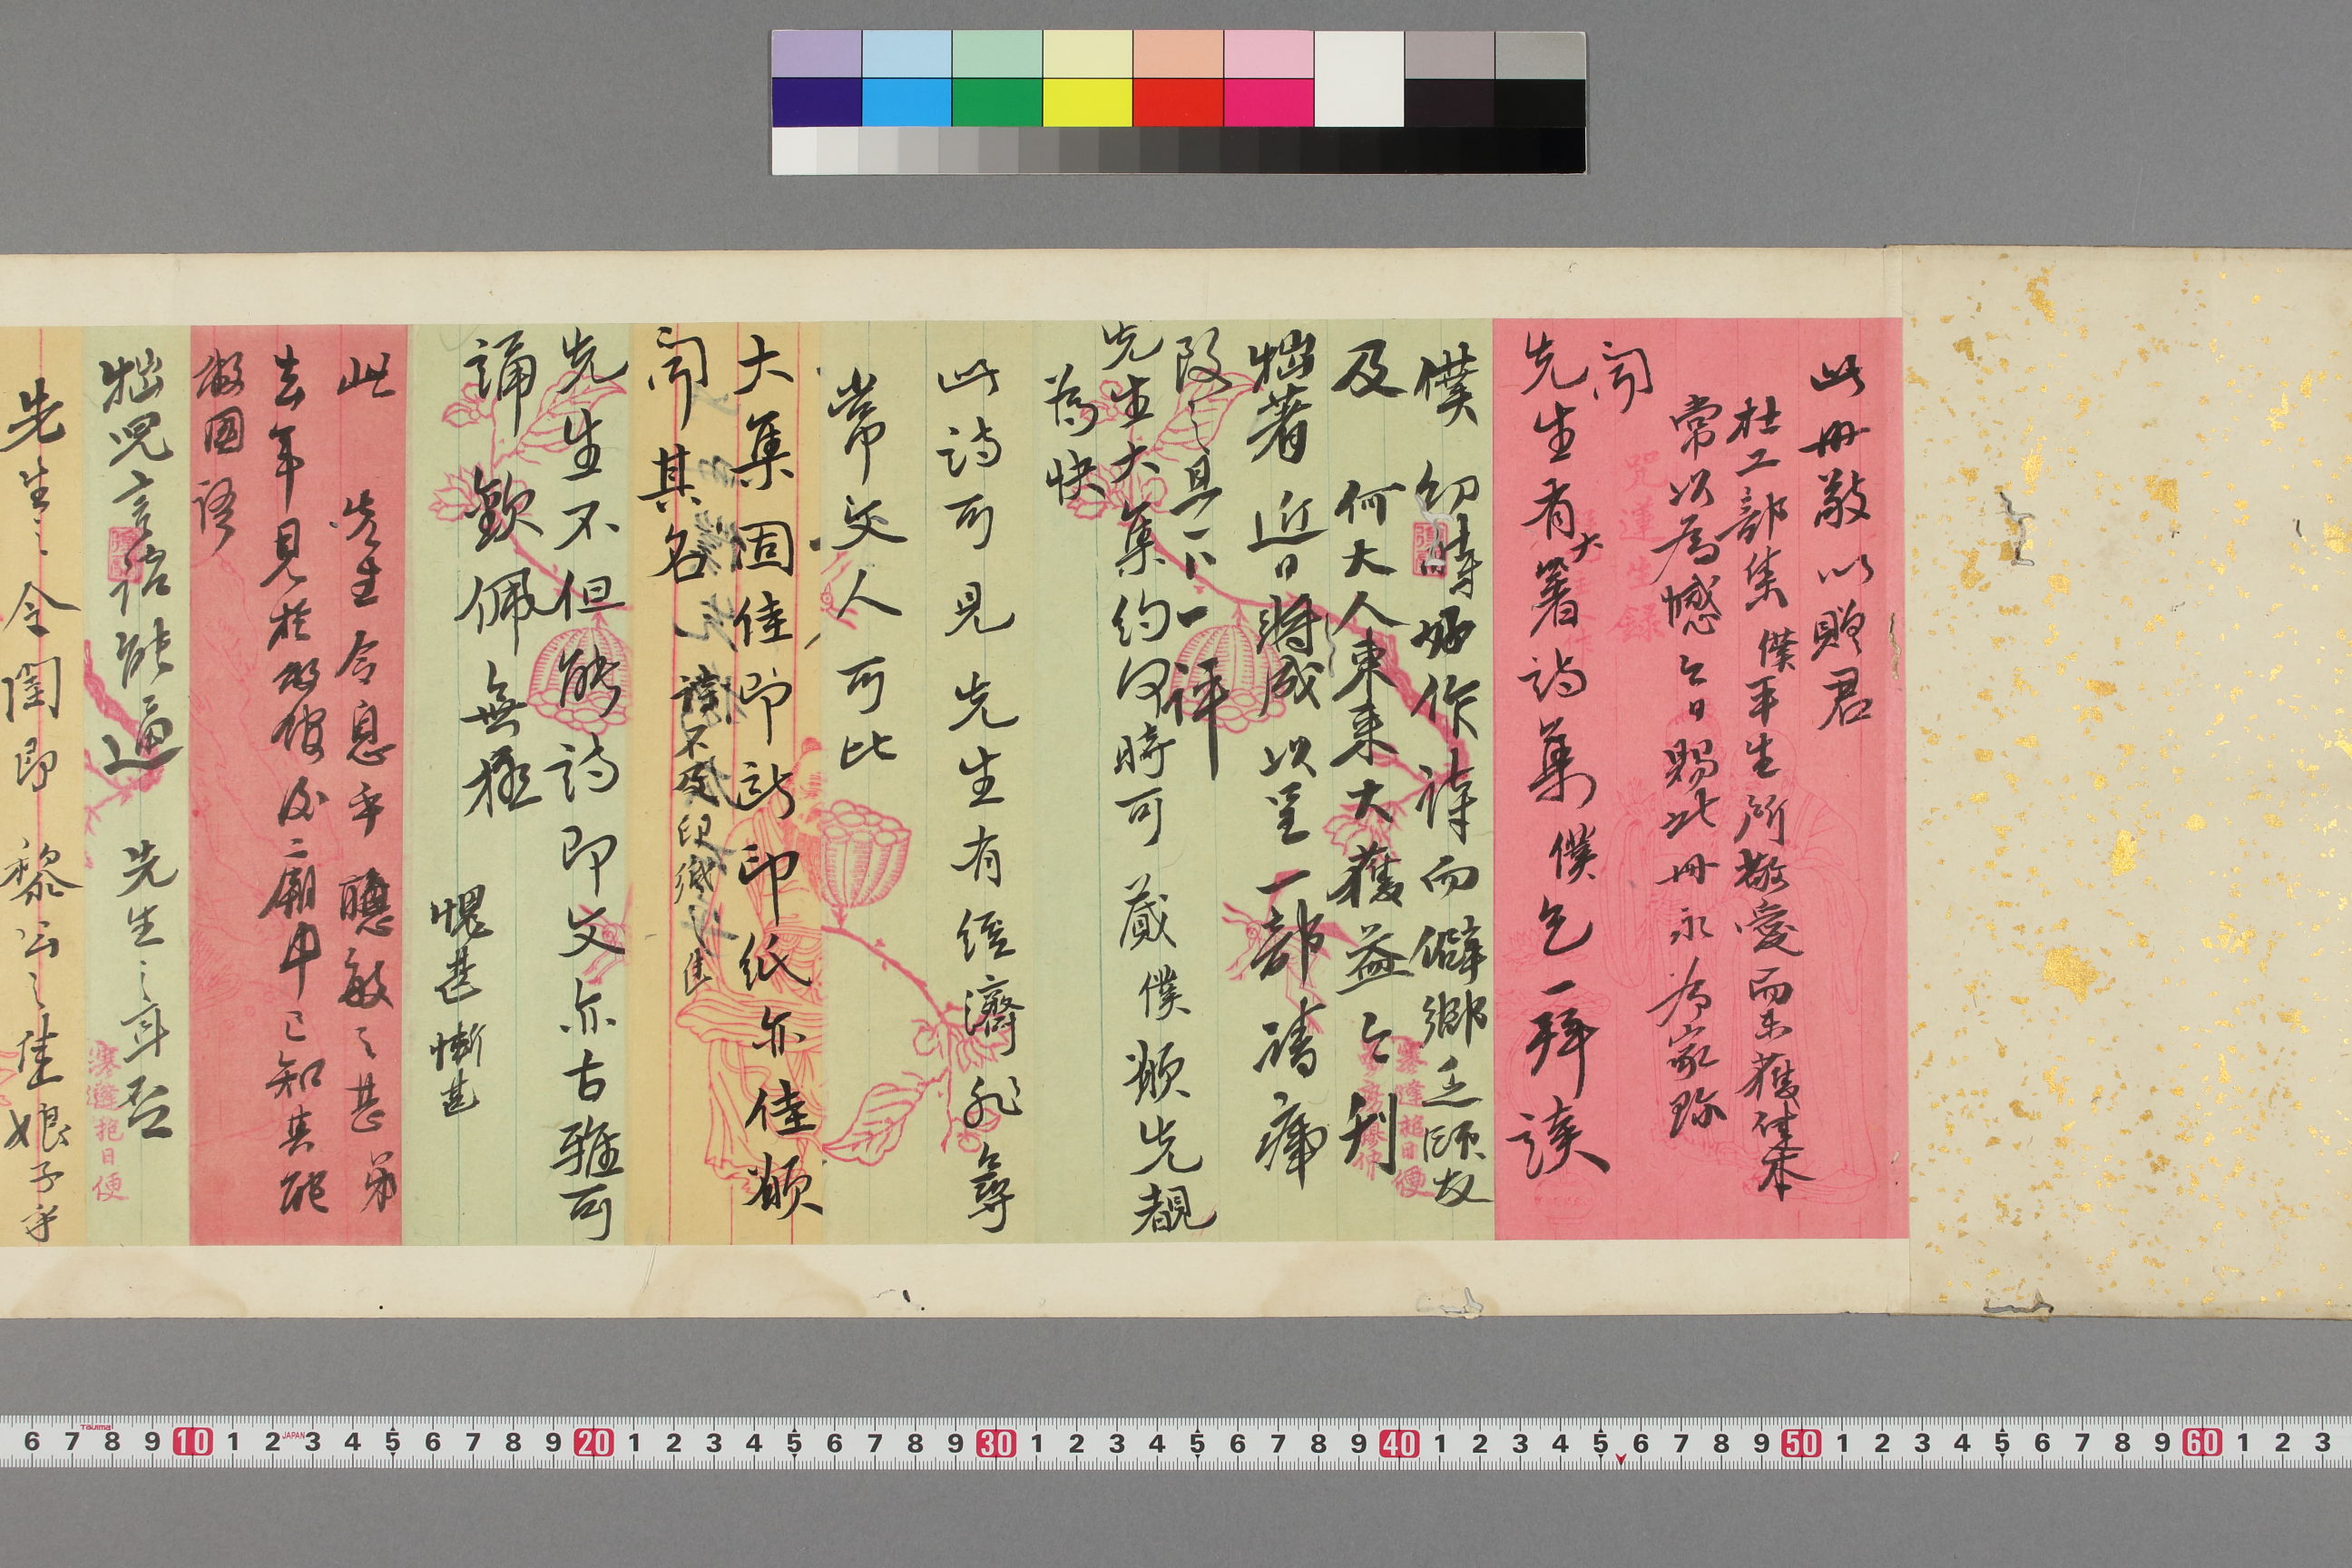 此冊敬以贈君
杜工部集僕平生所敬愛而未獲佳本
常以為憾今日賜此冊永為家珍
聞
先生有大著詩集僕乞一拜讀
僕幼時好作詩而僻鄉乏師友
及何大人東來大獲益今刊
拙著近日將成以呈一部請痛
段之且下一評
先生大集約何時可蔵僕願先覩
為快
此詩可見先生有經濟非尋
常文人可比
大集固佳即此印紙亦佳願
聞其名
謙不敢 印紙 佳
先生不但能詩即文亦古雅可
誦欽佩無極
愧甚慚甚
此 先生令息乎聰敏之甚弟
去年見於 後二廟中已知其能
敝国語
拙児言語能逼先生之耳否
先生之令閨即黎公之佳娘子乎
咒蓮生錄
寒蓬抱日便
6 7 8 9 10 1 2 3 4 5 6 7 8 9 20 1 2 3 4 5 6 7 8 9 30 1 2 3 4 5 6 7 8 9 40 1 2 3 4 5 6 7 8 9 50 1 2 3 4 5 6 7 8 9 60 1 2 3
TAJIMA
JAPAN